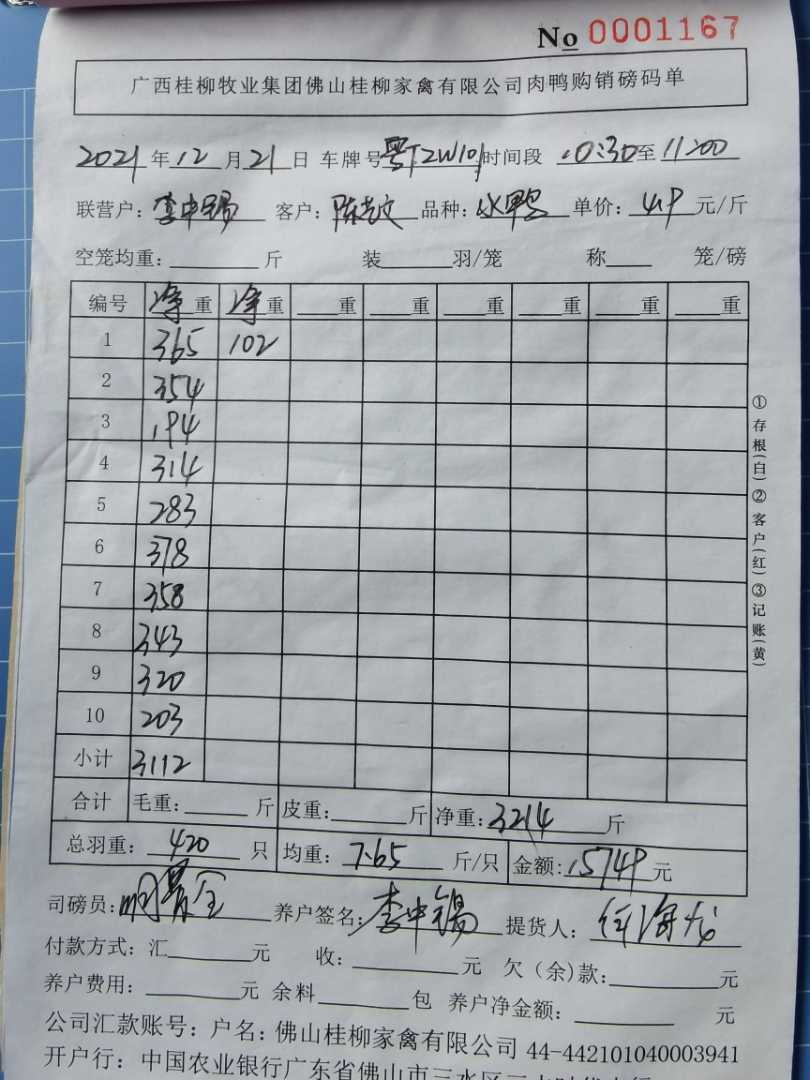 No 0001167
广西桂柳牧业集团佛山桂柳家禽有限公司肉鸭购销磅码单
2021年12月21日 车牌号粤T2W101时间段 10:30至11:00
联营户:李中锡 客户: 品种:水鸭 单价:4.9元/斤
空笼均重: 斤 装 羽/笼 称 笼/磅
编号 净重 净重 重 重 重 重 重 重
1 365 102
2 354
3 194
4 314
5 283
6 378
7 358
8 343
9 320
10 203
小计 3112
合计 毛重: 斤 皮重: 斤 净重:3214斤
总羽重:420只 均重:7.65斤/只 金额:15749元
司磅员: 养户签名:李中锡 提货人:
付款方式:汇 元 收: 元 欠(余)款: 元
养户费用: 元 余料 包 养户净金额: 元
公司汇款账号:户名:佛山桂柳家禽有限公司 44-442101040003941
开户行:中国农业银行广东省佛山市三水区
①存根(白)②客户(红)③记账(黄)